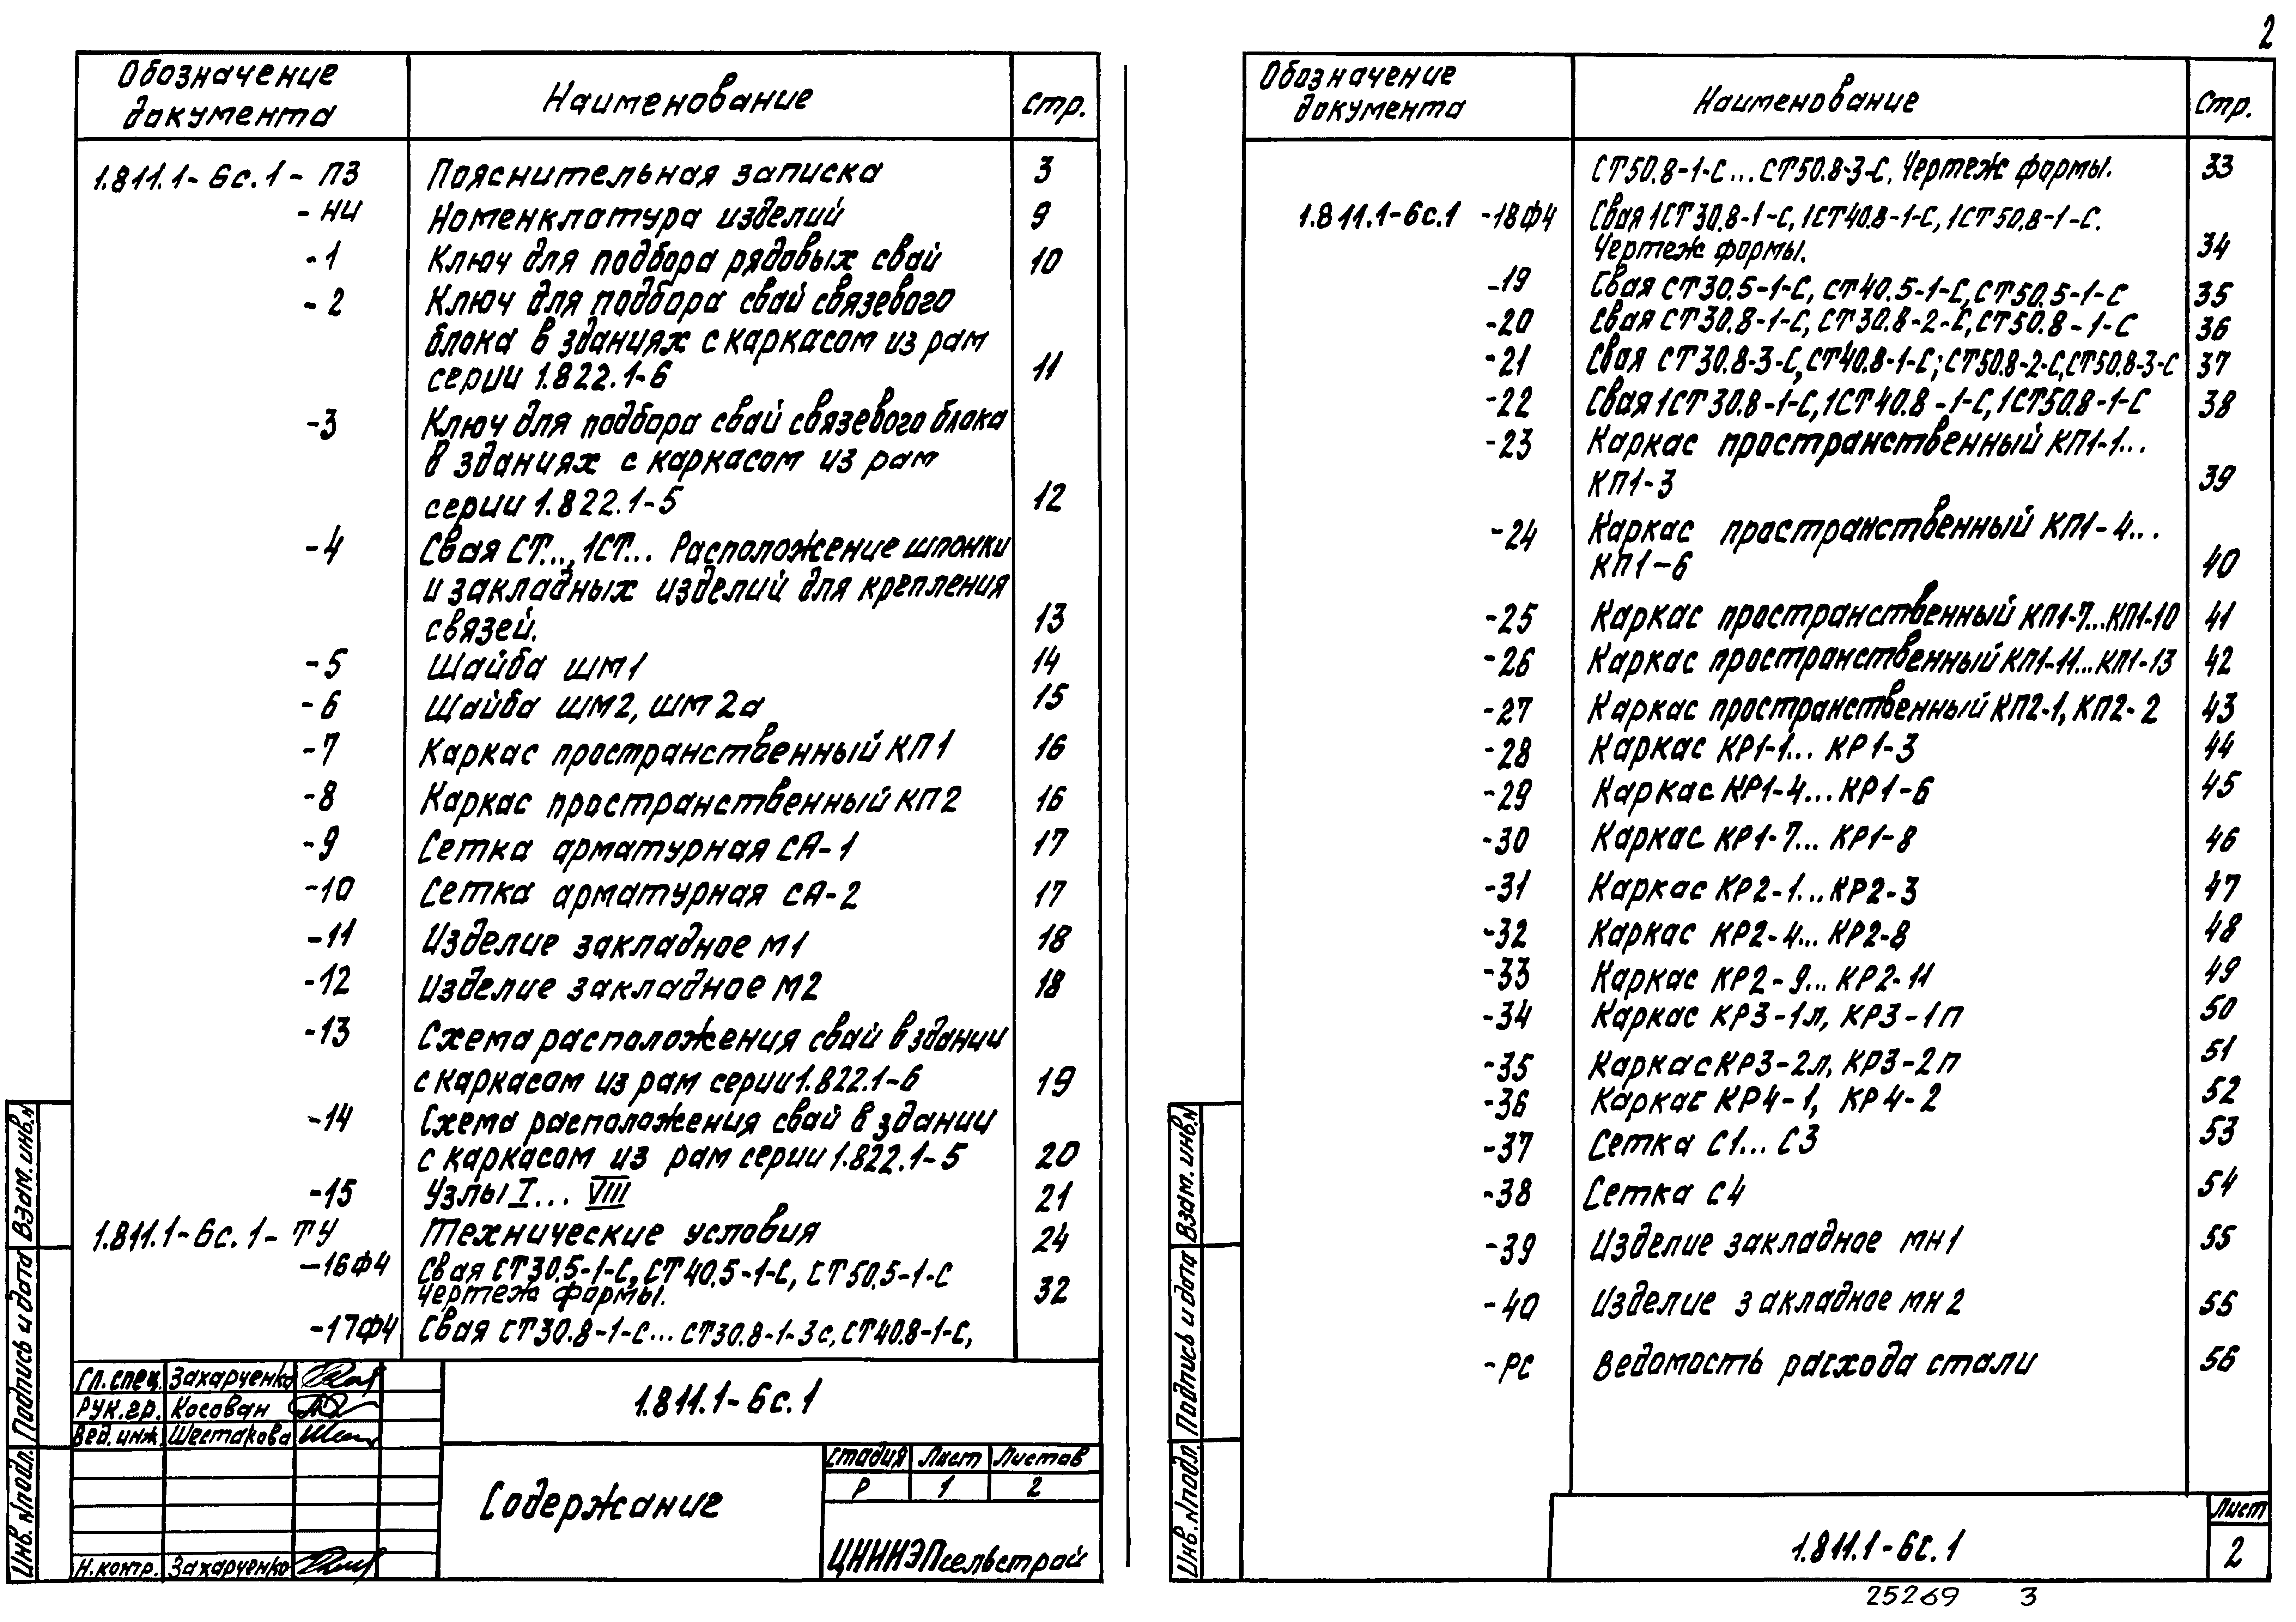 2
Обозначение документа Наименование стр.
1.811.1-6с.1-ПЗ Пояснительная записка 3
-НИ Номенклатура изделий 9
-1 Ключ для подбора рядовых свай 10
-2 Ключ для подбора свай связевого
блока в зданиях с каркасом из рам
серии 1.822.1-6 11
-3 Ключ для подбора свай связевого блока
в зданиях с каркасом из рам
серии 1.822.1-5 12
-4 Свая СТ..., 1СТ... Расположение шпонки
и закладных изделий для крепления
связей. 13
-5 Шайба шм1 14
-6 Шайба шм2, шм2а 15
-7 Каркас пространственный КП1 16
-8 Каркас пространственный КП2 16
-9 Сетка арматурная СА-1 17
-10 Сетка арматурная СА-2 17
-11 Изделие закладное М1 18
-12 Изделие закладное М2 18
-13 Схема расположения свай в здании
с каркасом из рам серии 1.822.1-6 19
-14 Схема расположения свай в здании
с каркасом из рам серии 1.822.1-5 20
-15 Узлы I... VIII 21
1.811.1-6с.1-ТУ Технические условия 24
-16Ф4 Свая СТ30.5-1-С, СТ40.5-1-С, СТ50.5-1-С
Чертеж формы. 32
-17Ф4 Свая СТ30.8-1-С...СТ30.8-1-3с, СТ40.8-1-С,
Гл. спец. Захарченко
Рук. гр. Косован
Вед. инж. Шестакова
Н. контр. Захарченко
1.811.1-6с.1
Содержание
Стадия Лист Листов
Р 1 2
ЦНИИЭПсельстрой
Взам. инв. N
Подпись и дата
Инв. N подл.
Обозначение документа Наименование Стр.
СТ50.8-1-С...СТ50.8-3-С. Чертеж формы. 33
1.811.1-6с.1 -18Ф4 Свая 1СТ30.8-1-С, 1СТ40.8-1-С, 1СТ50.8-1-С.
Чертеж формы. 34
-19 Свая СТ30.5-1-С, СТ40.5-1-С, СТ50.5-1-С 35
-20 Свая СТ30.8-1-С, СТ30.8-2-С, СТ50.8-1-С 36
-21 Свая СТ30.8-3-С, СТ40.8-1-С; СТ50.8-2-С, СТ50.8-3-С 37
-22 Свая 1СТ30.8-1-С, 1СТ40.8-1-С, 1СТ50.8-1-С 38
-23 Каркас пространственный КП1-1...
КП1-3 39
-24 Каркас пространственный КП1-4...
КП1-6 40
-25 Каркас пространственный КП1-7...КП1-10 41
-26 Каркас пространственный КП1-11...КП1-13 42
-27 Каркас пространственный КП2-1, КП2-2 43
-28 Каркас КР1-1... КР1-3 44
-29 Каркас КР1-4...КР1-6 45
-30 Каркас КР1-7... КР1-8 46
-31 Каркас КР2-1...КР2-3 47
-32 Каркас КР2-4... КР2-8 48
-33 Каркас КР2-9... КР2-11 49
-34 Каркас КР3-1л, КР3-1п 50
-35 Каркас КР3-2л, КР3-2п 51
-36 Каркас КР4-1, КР4-2 52
-37 Сетка С1... С3 53
-38 Сетка С4 54
-39 Изделие закладное мн1 55
-40 Изделие закладное мн2 55
-РС Ведомость расхода стали 56
Взам. инв. N
Подпись и дата
Инв. N подл.
1.811.1-6с.1
Лист
2
25269 3